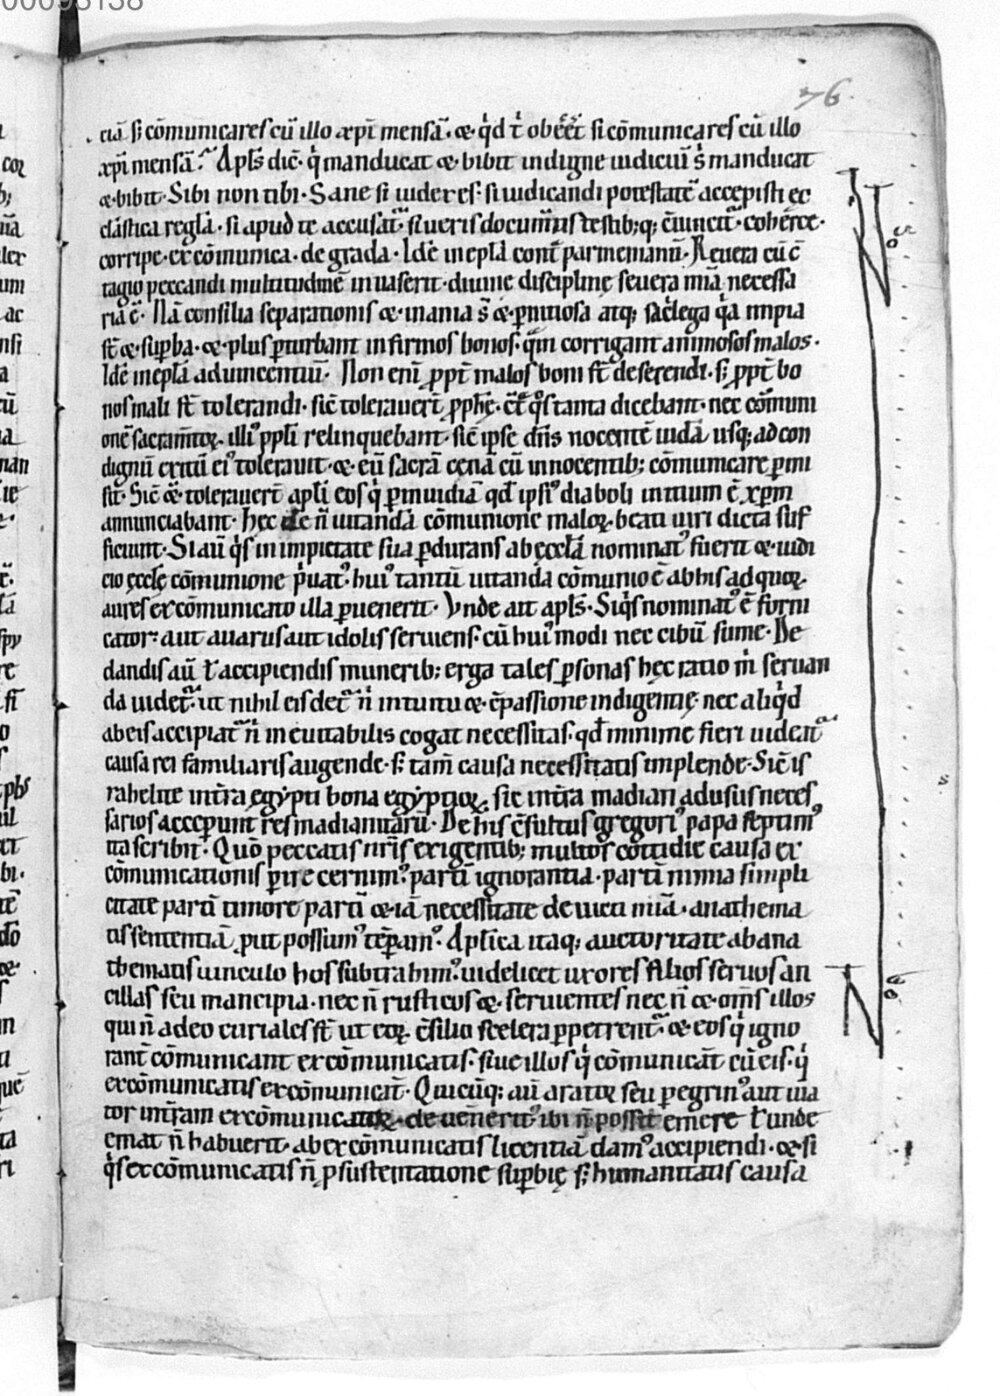 76.
ciā si cōmunicares cū illo a xp̄i mensā. & q'd t' obēēt si cōmunicares cū illo
a xp̄i mensā. Apl's dic̄. q' manducat & bibit indigne iudiciū s' manducat
& bibit. Sibi non tibi. Sane si iudex es. si iudicandi potestatē accepisti ec
clāstica regla. si apud te accusat'. si ueris documtis testib; q; c̄uincit'. coherce.
corripe. excōmunica. degrada. Idē in epla cont' parmenianū. Reuera cū c̄
tagio peccandi multitudinē inuaserit. diuine discipline seuera mīa necessa
ria ē. Nā consilia separationis & inania s̄ & p̄nitiosa atq; sac̄lega q'a impia
st̄ & sup̄ba. & plus p̄turbant infirmos bonos. q̄m corrigant animosos malos.
Idē in epla ad uincentiū. Non eni ppt' malos boni st̄ deserendi. s; ppt' bo
nos mali st̄ tolerandi. sic̄ tolerauer̄t pphe. c̄t' q's tanta dicebant. nec cōmuni
onē sacramtoꝝ illi' ppli relinquebant. sic̄ ipse dn̄s nocentē iudā usq; ad con
dignū exitū ei' tolerauit. & eū sacrā cenā cū innocentib; cōmunicare p̄mi
sit. Sic̄ & tolerauer̄t apl'i eos q' p inuidiā qd̄ ipsi' diaboli initium ē xp̄m
annunciabant. hec de n̄ uitanda cōmunione maloꝝ beati uiri dicta suf
ficiunt. Si aū q's in impietate sua p̄durans ab eccl'a nominat' fuerit & iudi
cio eccl'e cōmunione p'uat'. hui' tantū uitanda cōmunio ē ab his ad quoꝝ
aures excōmunicatio illa p̄uenerit. Vnde ait apl's. Siq's nominat' ē forni
cator: aut auarus aut idolis seruiens. cū hui'modi nec cibū sume. De
dandis aū l' accipiendis munerib; erga tales p̄sonas hec ratio m' seruan
da uidet'. ut nihil eis det' n' intuitu & c̄passione indigentie. nec aliq'd
ab eis accipiat' n' ineuitabilis cogat necessitas. qd̄ minime fieri uideat'
causa rei familiaris augende. s; tam̄ causa necessitatis implende. Sic is
rahelite intra egypti bona egyptioꝝ. sic intra madian ad usus neces
sarios accep̄unt res madianitarū. De his c̄sultus gregori' papa septim'
ita scribit. Quō peccatis nr̄is exigentib; multos cottidie causa ex
cōmunicationis p̄ire cernim'. partī ignorantia. partī nimia simpli
citate partī timore partī & iā necessitate deuicti mīa. anathema
tis sententiā put possum' tēp̄am'. Apl'ica itaq; auctoritate ab ana
thematis uinculo hos subtrahim'. uidelicet uxores filios seruos an
cillas seu mancipia. nec n̄ rusticos & seruientes nec n̄ & om̄s illos
qui n̄ adeo curiales st̄ ut eoꝝ c̄silio scelera ppetrent'. & eos q' igno
rant' cōmunicant excōmunicatis. siue illos q' cōmunicāt cū eis. q'
excōmunicatis excōmunicāt. Quicūq; aū arator seu peregrin' aut uia
tor intr̄am excōmunicatoꝝ deuenerit' ibi n̄ possit emere l' unde
emat n̄ habuerit. ab excōmunicatis licentiā dam' accipiendi. & si
q's excōmunicatis n̄ p sustentatione sup̄bie s; humanitatis causa